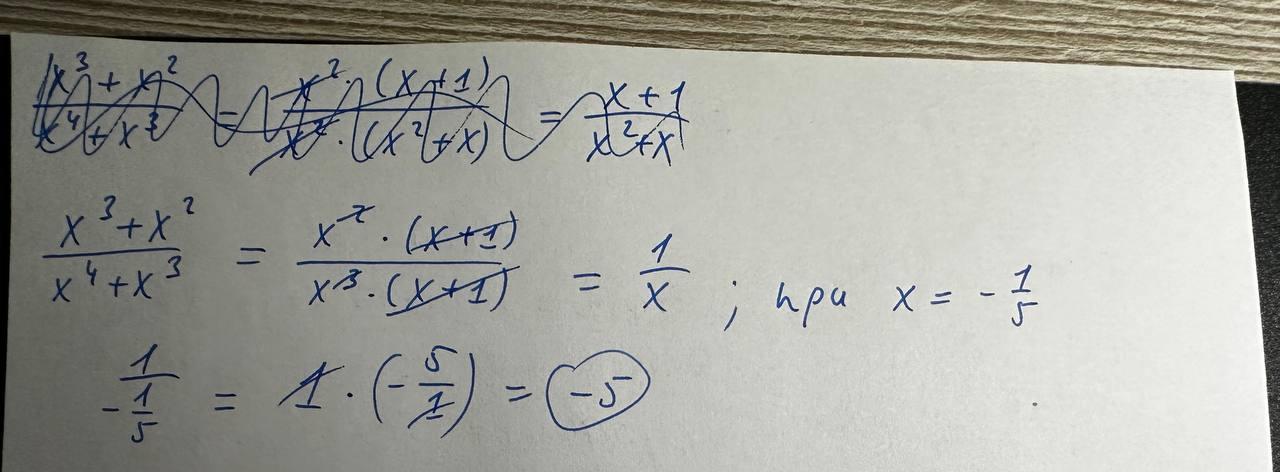 (x³ + x²)/(x⁴ + x³) = (x² · (x + 1))/(x² · (x² + x)) = (x + 1)/(x² + x)
(x³ + x²)/(x⁴ + x³) = (x² · (x + 1))/(x³ · (x + 1)) = 1/x ; при x = - 1/5
1/(- 1/5) = 1 · (- 5/1) = -5